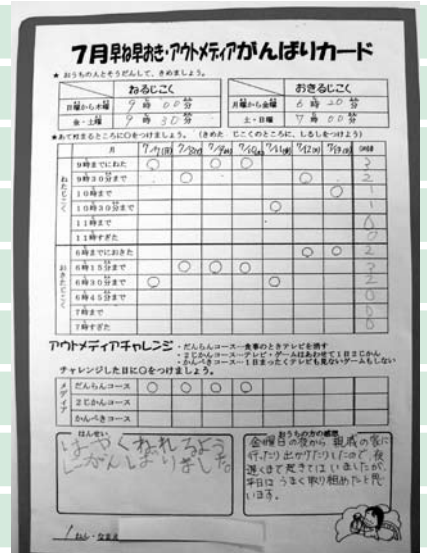 7月早ね早おき・アウトメディアがんばりカード
★ おうちの人とそうだんして、きめましょう。
ねるじこく おきるじこく
日曜から木曜 9時00分 月曜から金曜 6時20分
金・土曜 9時30分 土・日曜 7時00分
★あて却まるところに○をつけましょう。 (きめた じこくのところに、しるしをつけよう)
月 7/7(月) 7/8(火) 7/9(水) 7/10(木) 7/11(金) 7/12(土) 7/13(日) ○の数
ねたじこく
9時までにねた ○ ○ ○ 3
9時30分まで ○ ○ 2
10時まで ○ 1
10時30分まで ○ 1
11時まで 0
11時すぎた 0
おきたじこく
6時までにおきた ○ ○ 2
6時15分まで ○ ○ ○ 3
6時30分まで ○ ○ 2
6時45分まで 0
7時まで 0
7時すぎた 0
アウトメディアチャレンジ ・だんらんコース―食事のときテレビを消す
・2じかんコース―テレビ・ゲームはあわせて1日2じかん
・かんぺきコース―1日まったくテレビも見ないゲームもしない
チャレンジした日に○をつけましょう。
メディア
だんらんコース ○ ○ ○ ○
2じかんコース
かんぺきコース
はんせい
はやくねれるよう
にがんばりました。
おうちの方の感想
金曜日の夜から 親戚の家に
行ったり出かけたりしたので、夜
遅くまで起きてはいましたが、
平日はうまく取り組めたと思
います。
1ねん・なまえ